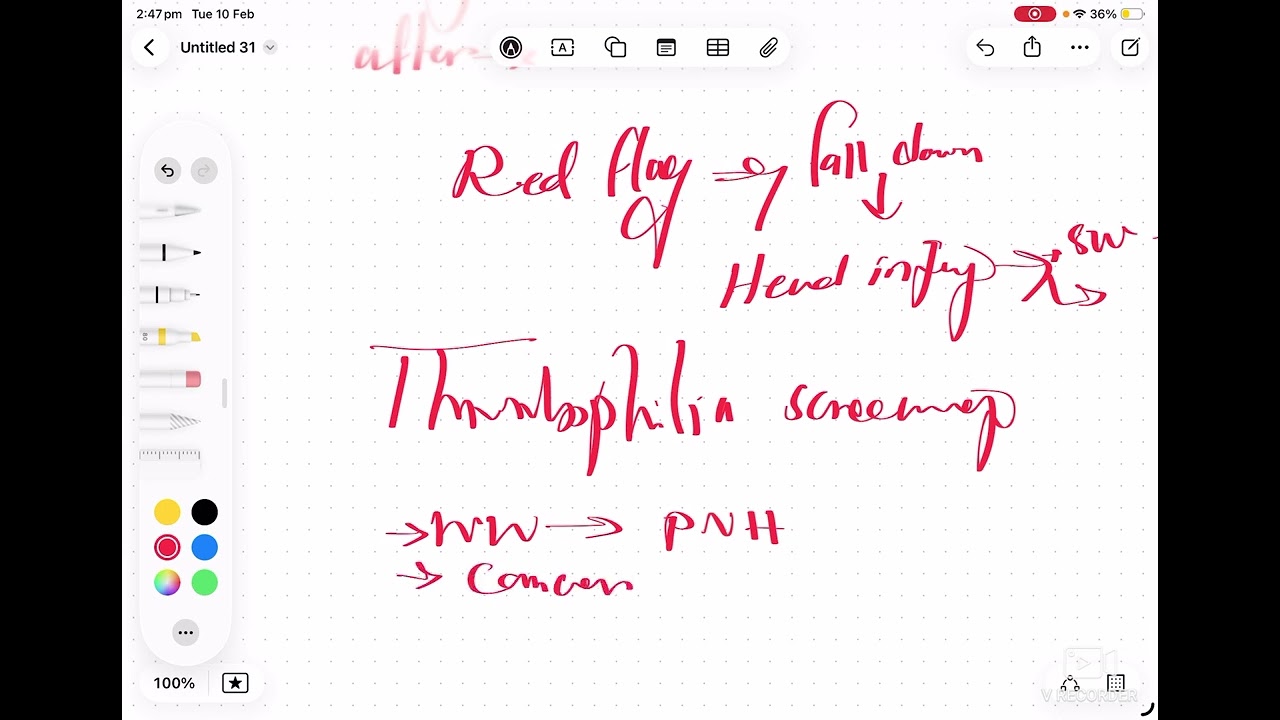 2:47pm Tue 10 Feb
36%
Untitled 31
after
A
Red flag → fall down
↓
Head injury → 8w
Thrombophilia screening
→ → PNH
→ Cancer
80
100%
V RECORDER